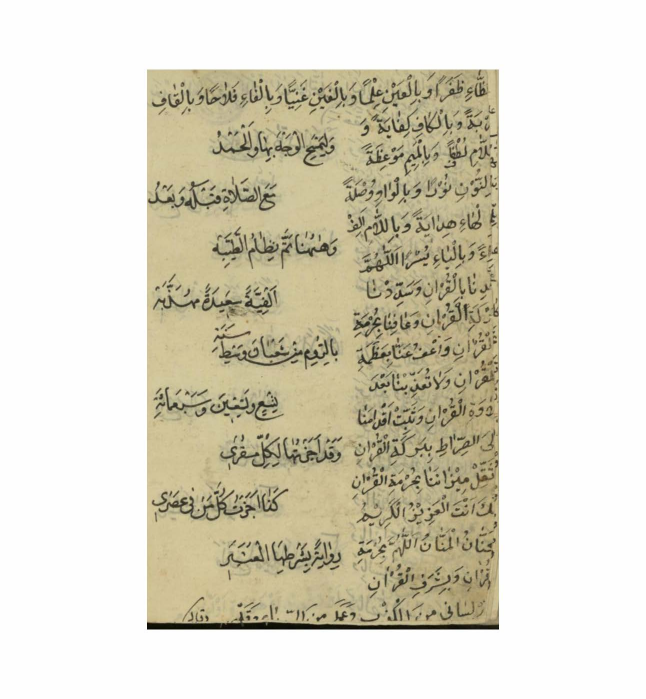 ظَّاءِ ظَفَرًا وَبِالْعَيْنِ عِلْمًا وَبِالْغَيْنِ غَنِيًّا وَبِالْفَاءِ فَلَاحًا وَبِالْقَافِ
بَةً وَبِالْكَافِ كِفَايَةً وَ
لَّامِ لُطْفًا وَبِالْمِيمِ مَوْعِظَةً
بِالنُّونِ نُورًا وَبِالْوَاوِ وُصْلَةً
لْهَاءِ هِدَايَةً وَبِاللَّامِ الِفْ
وَبِالْيَاءِ يُسْرًا اَللّٰهُمَّ
بِالْقُرْاٰنِ
الْقُرْاٰنِ وَعَافِنَا بِحُرْمَةِ
الْقُرْاٰنِ وَاعْفُ عَنَّا بِعَظَمَةِ
الْقُرْاٰنِ وَلَا تُعَذِّبْنَا بَعْدَ
وَةِ الْقُرْاٰنِ وَثَبِّتْ اَقْدَامَنَا
لَى الصِّرَاطِ بِبَرَكَةِ الْقُرْاٰنِ
ثَقِّلْ مِيزَانَنَا بِحُرْمَةِ الْقُرْاٰنِ
نَّكَ اَنْتَ الْعَزِيزُ الْكَرِيمُ
لْحَنَّانُ الْمَنَّانُ اَللّٰهُمَّ بِحُرْمَةِ
الْقُرْاٰنِ وَبِشَرَفِ الْقُرْاٰنِ
وَلْيَمْسَحِ الْوَجْهَ بِهَا وَالْحَمْدُ
مَعَ الصَّلَاةِ قَبْلَهُ وَبَعْدُ
وَهٰهُنَا تَمَّ نِظَامُ الطَّيِّبَهْ
اَلْفِيَّةً سَعِيدَةً مُهَذَّبَهْ
بِالرُّومِ مِنْ شَعْبَانَ وَسْطَ سَنَةِ
تِسْعٍ وَتِسْعِينَ وَسَبْعِمِائَةِ
وَقَدْ اَجَزْتُهَا لِكُلِّ مُقْرِى
كَذَا اَجَزْتُ كُلَّ مَنْ فِى عَصْرِى
رِوَايَةً بِشَرْطِهَا الْمُعْتَبَرِ